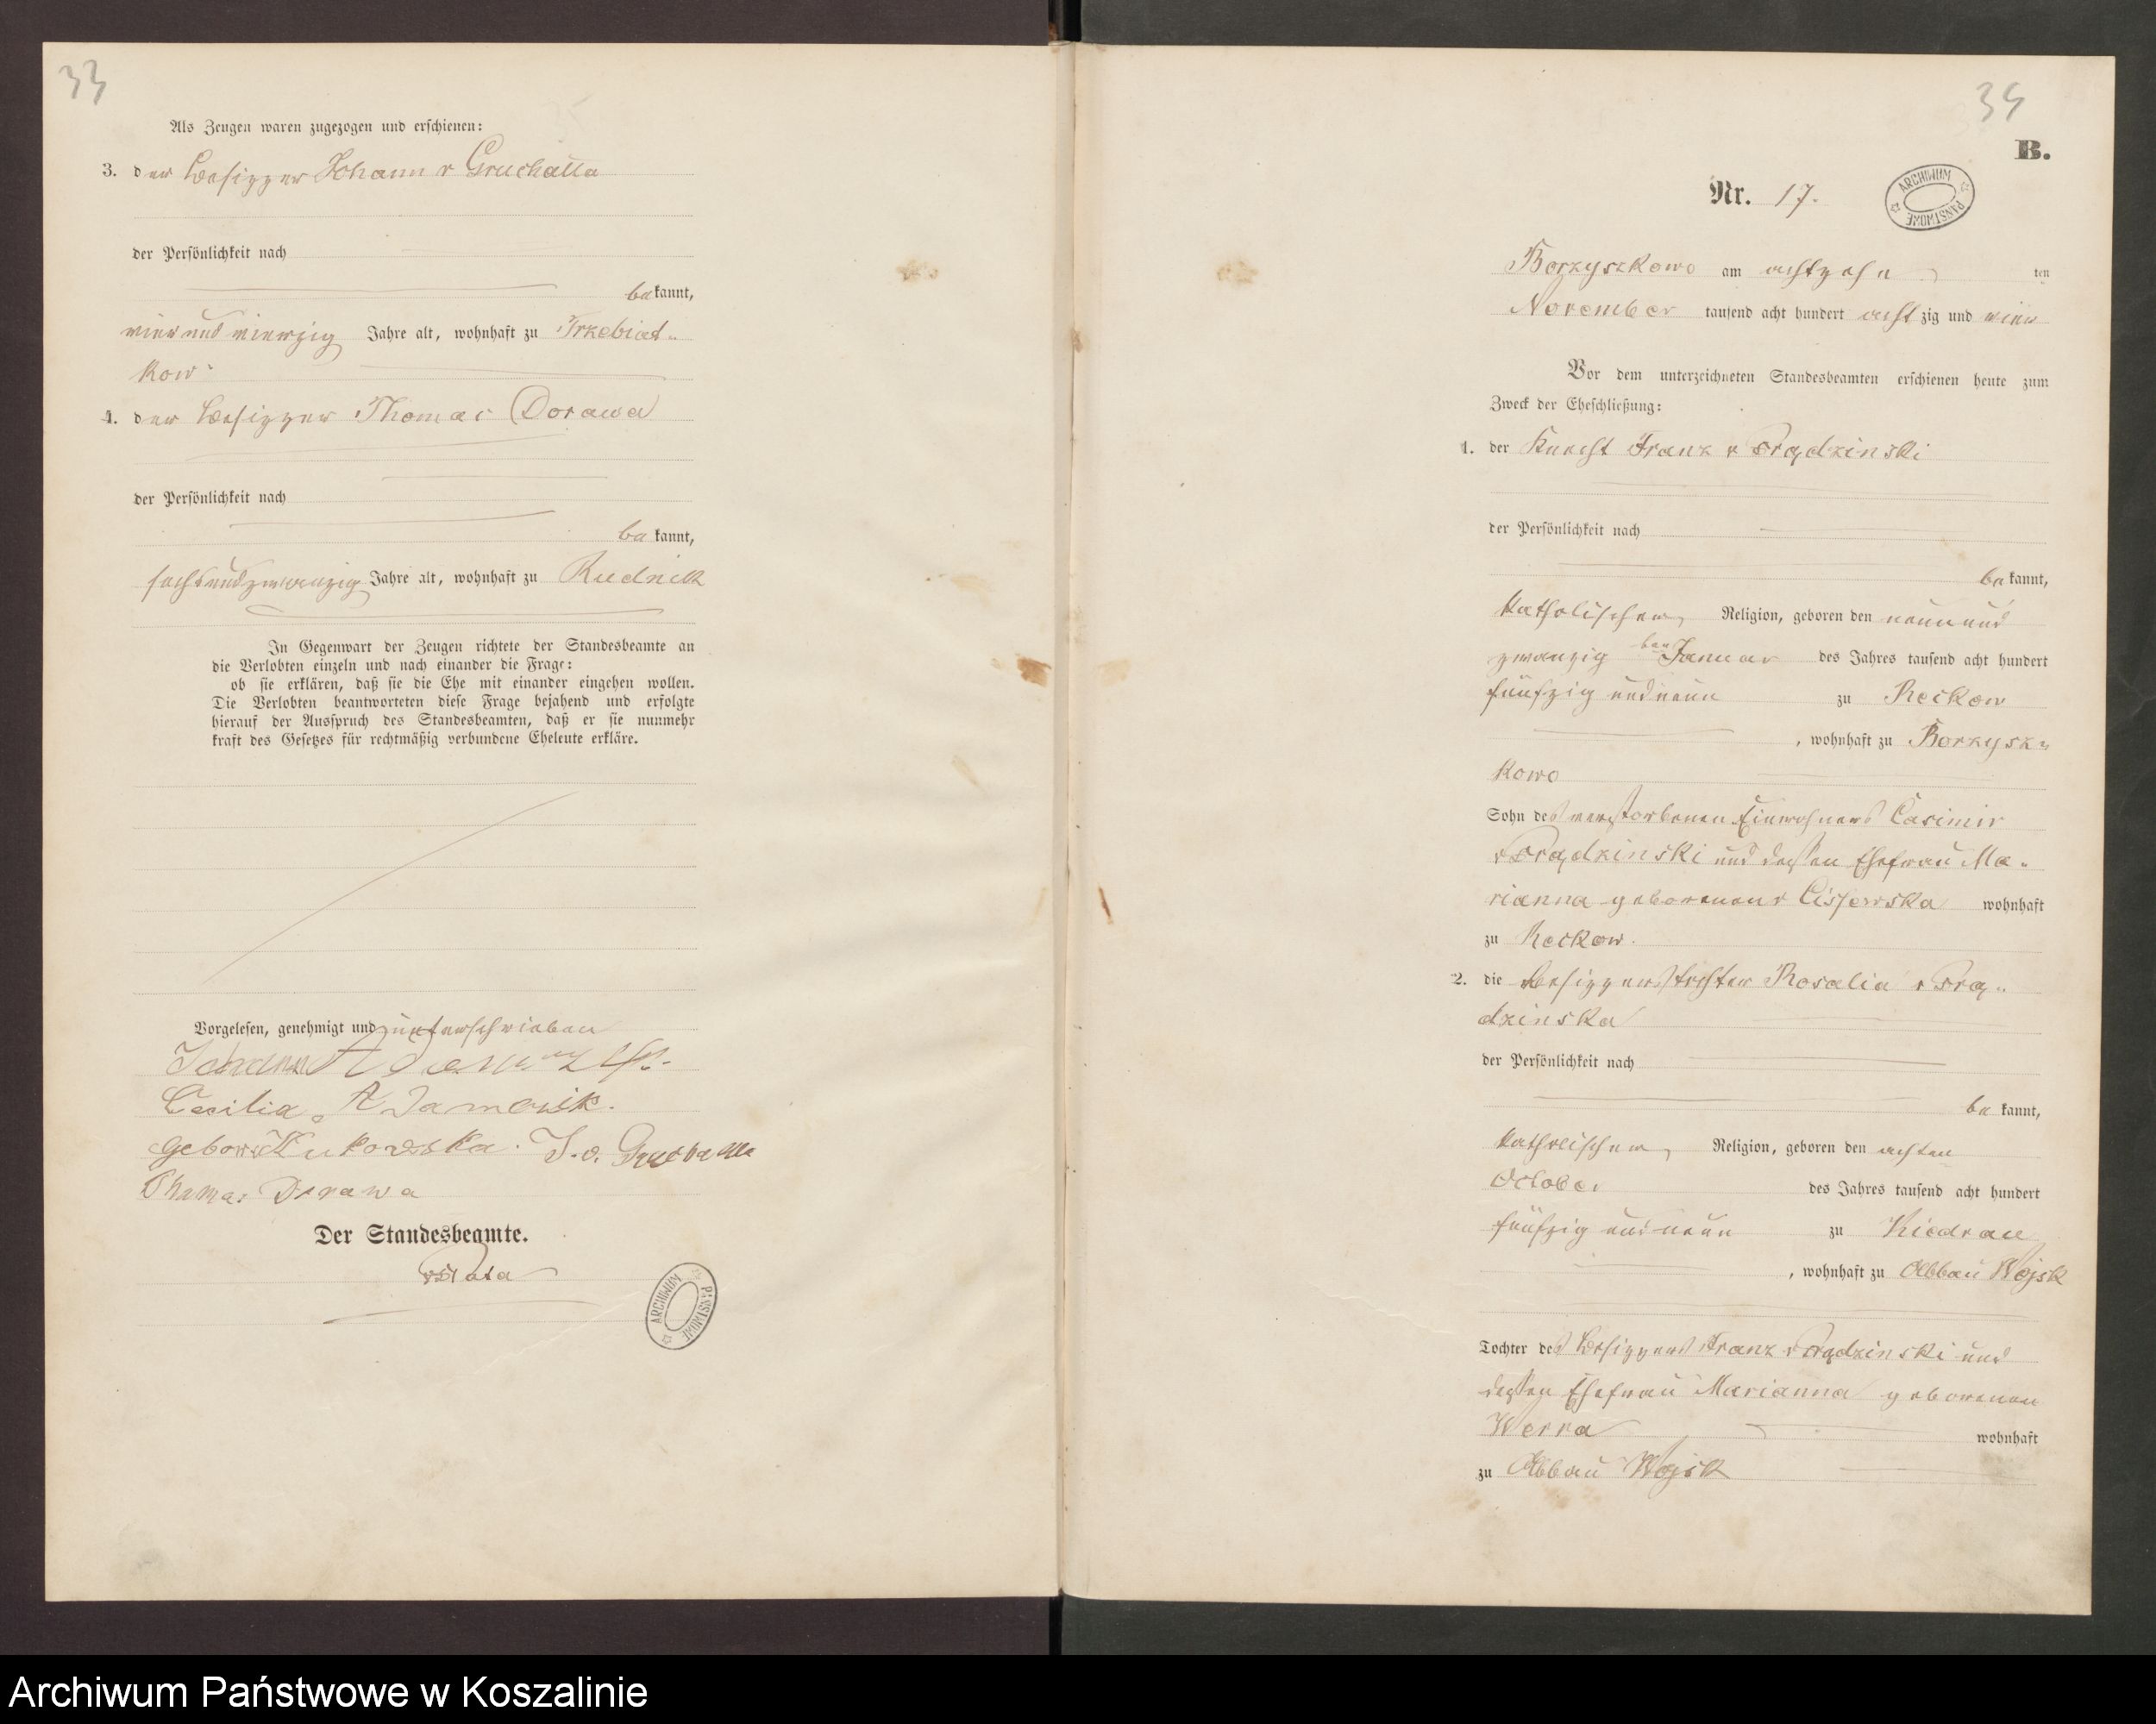 33
Als Zeugen waren zugezogen und erschienen:
3. der Besitzer Johann v Gruchalla
der Persönlichkeit nach
bekannt,
vier und vierzig Jahre alt, wohnhaft zu Trzebiat-
kow
4. der Besitzer Thomas Dorawa
der Persönlichkeit nach
bekannt,
sechsundzwanzig Jahre alt, wohnhaft zu Rudnik
In Gegenwart der Zeugen richtete der Standesbeamte an
die Verlobten einzeln und nach einander die Frage:
ob sie erklären, daß sie die Ehe mit einander eingehen wollen.
Die Verlobten beantworteten diese Frage bejahend und erfolgte
hierauf der Ausspruch des Standesbeamten, daß er sie nunmehr
kraft des Gesetzes für rechtmäßig verbundene Eheleute erkläre.
Vorgelesen, genehmigt und unterschrieben
Johann
Cecilia Adamczik.
gebor Kukowska. J. v. Gruchalla
Thomas Dorawa
Der Standesbeamte.
ARCHIWUM PAŃSTWOWE
34
B.
Nr. 17.
ARCHIWUM PAŃSTWOWE
Borzyszkowo am achtzehn ten
November tausend acht hundert achtzig und vier
Vor dem unterzeichneten Standesbeamten erschienen heute zum
Zweck der Eheschließung:
1. der Knecht Franz v Prądzinski
der Persönlichkeit nach
bekannt,
katholischer Religion, geboren den neun und
zwanzigsten Januar des Jahres tausend acht hundert
fünfzig und neun zu Reckow
, wohnhaft zu Borzysz-
kowo
Sohn des verstorbenen Einwohners Casimir
v Prądzinski und dessen Ehefrau Ma-
rianna geborene v Cissewska wohnhaft
zu Reckow.
2. die Besitzerstochter Rosalia v Prą-
dzinska
der Persönlichkeit nach
bekannt,
katholischer Religion, geboren den achten
October des Jahres tausend acht hundert
fünfzig und neun zu Kiedrau
, wohnhaft zu Abbau Wojsk
Tochter des Besitzers Franz v Prądzinski und
dessen Ehefrau Marianna geborenen
Werra wohnhaft
zu Abbau Wojsk
Archiwum Państwowe w Koszalinie